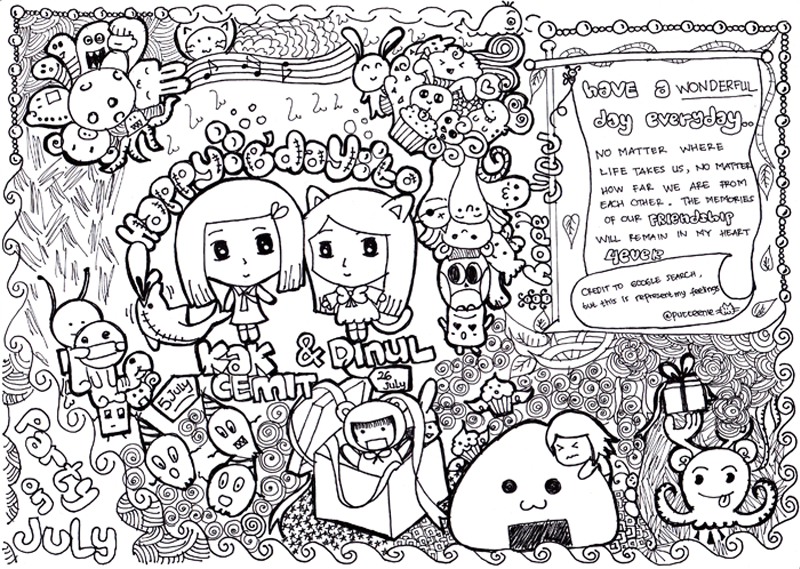 Happy B'day
Kak & Dinul
Cemit
5 July
26 July
Party
on
July
Have a WONDERFUL
day everyday..
NO MATTER WHERE
LIFE TAKES US, NO MATTER
HOW FAR WE ARE FROM
EACH OTHER. THE MEMORIES
OF OUR FRIENDSHIP
WILL REMAIN IN MY HEART
4EVER
CREDIT TO GOOGLE SEARCH,
but this is represent my feelings